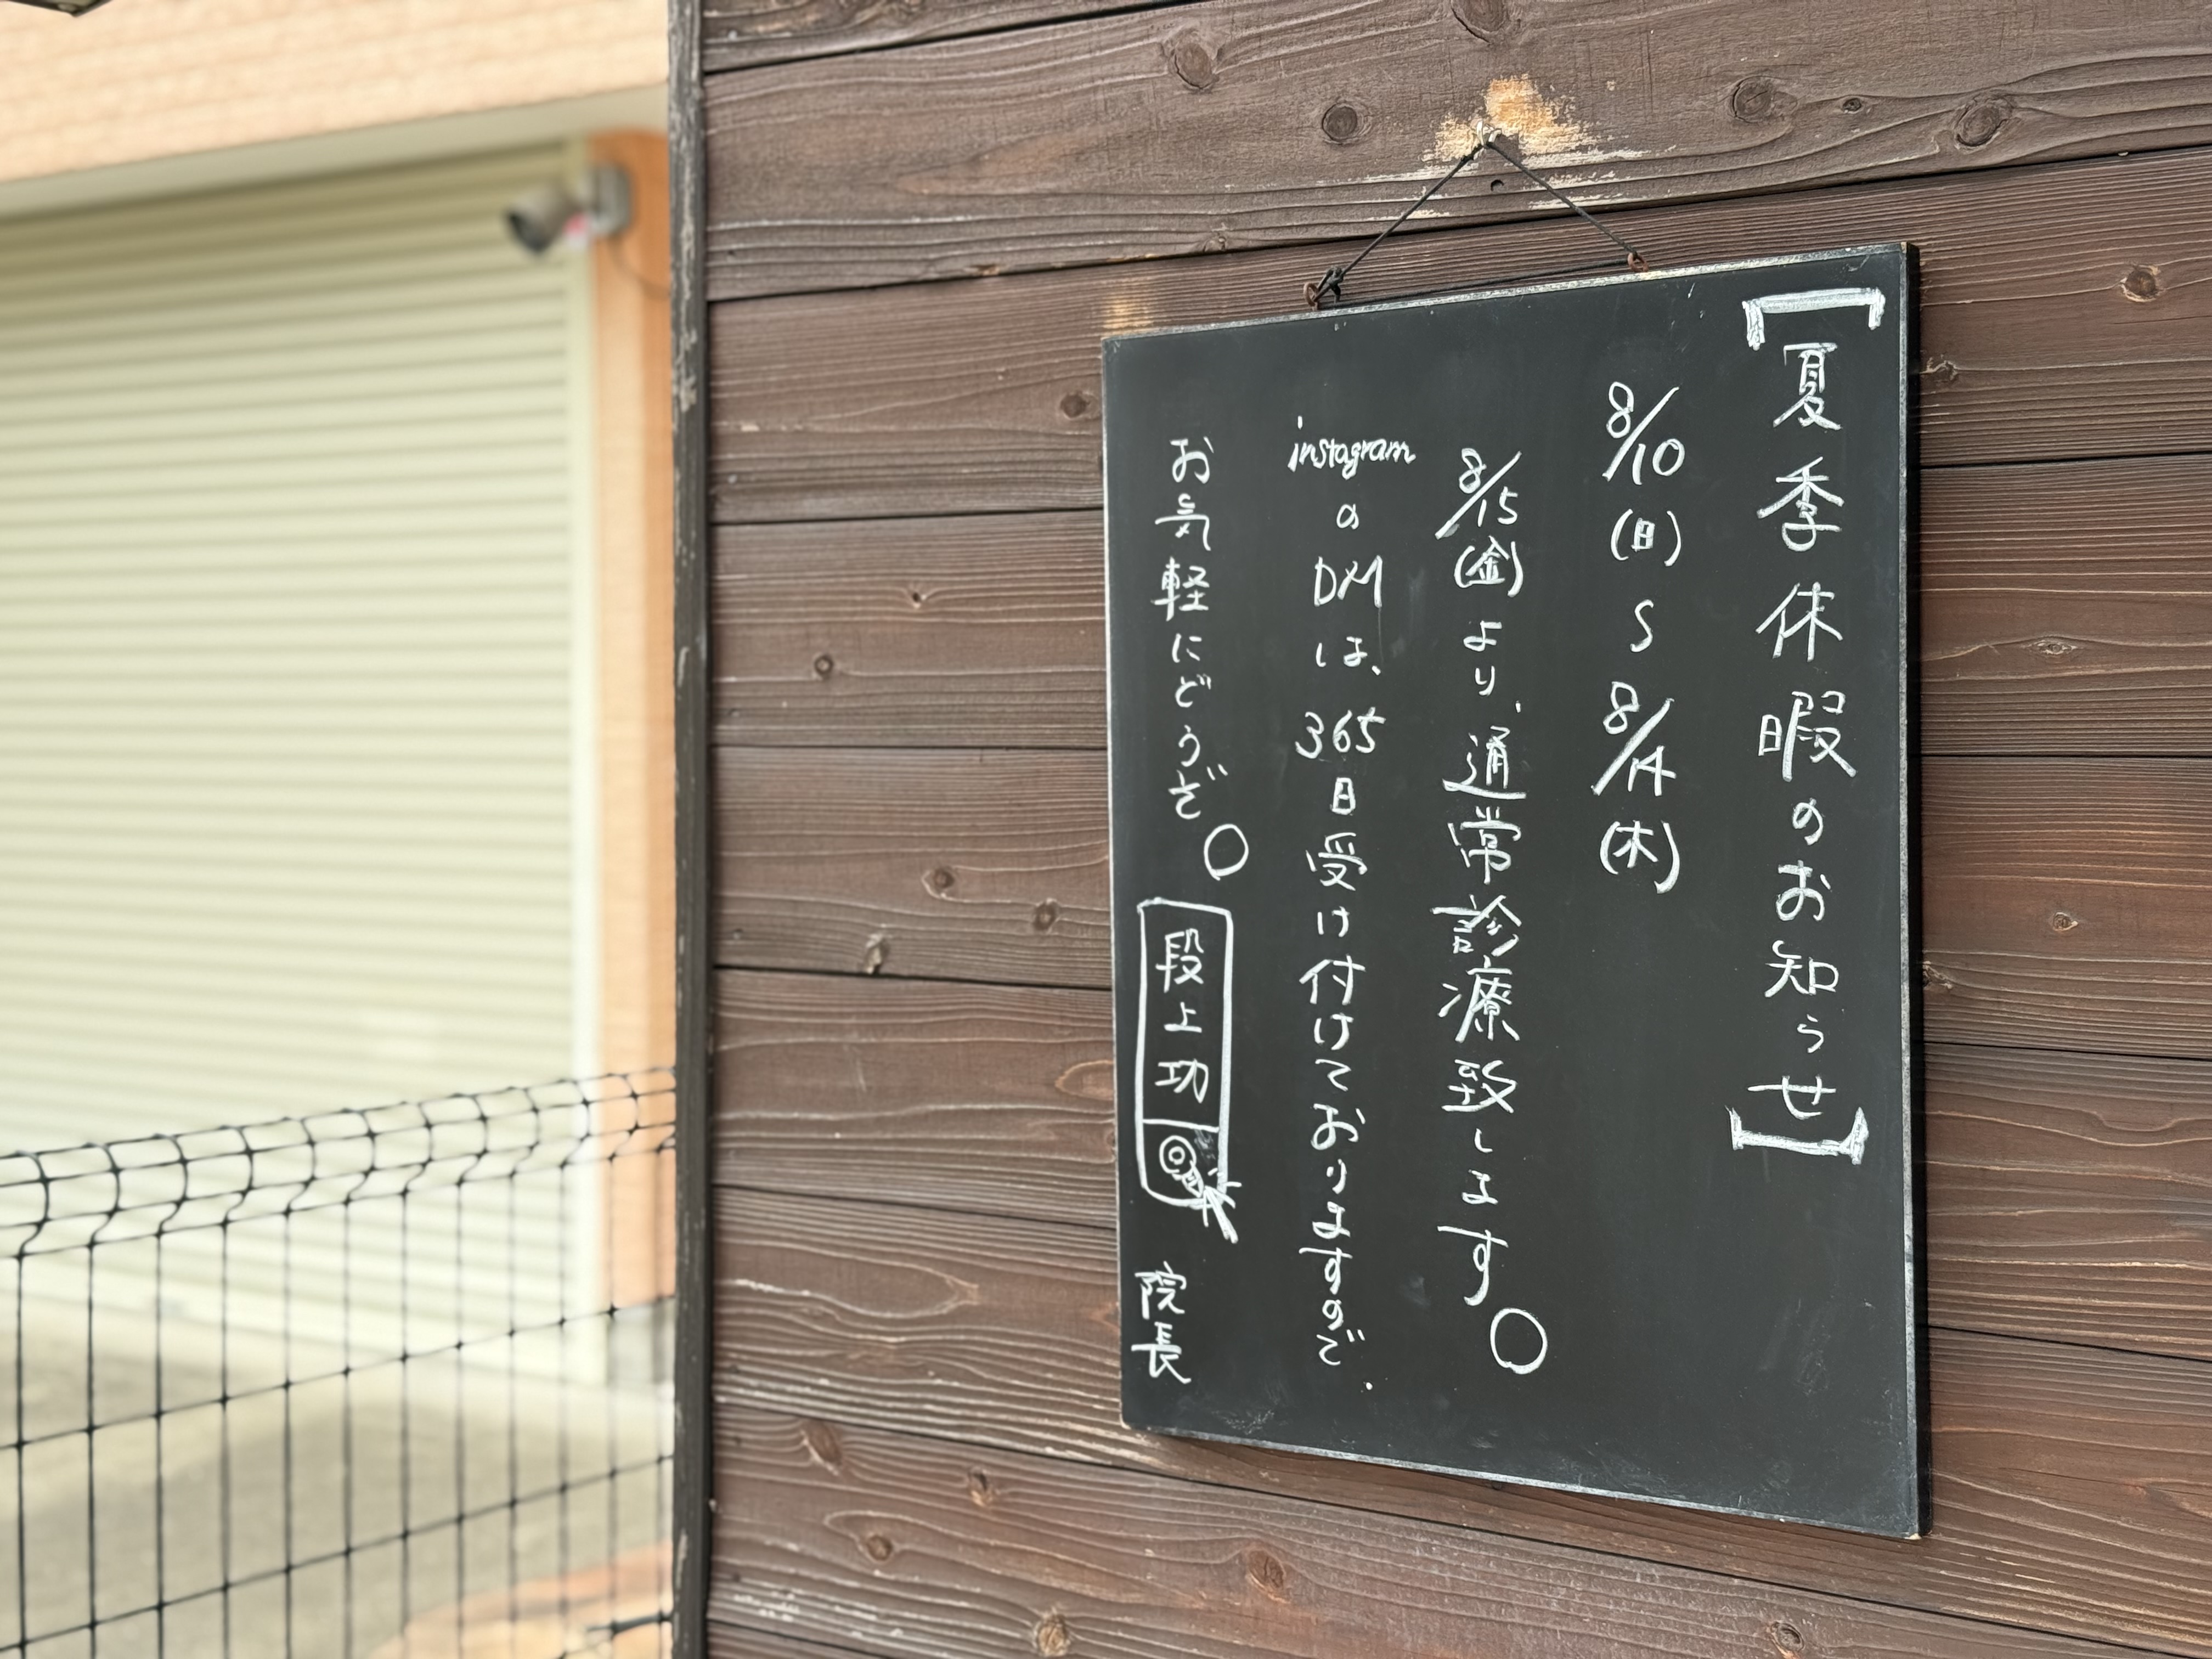 【夏季休暇のお知らせ】
8/10(日)〜8/14(木)
8/15(金)より、通常診療致します。
instagramのDMは、365日受け付けておりますので、
お気軽にどうぞ。 段上功 院長